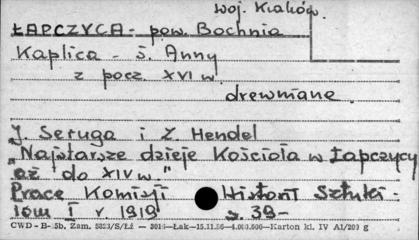 woj. Kraków.
ŁAPCZYCA - pow. Bochnia
Kaplica - ś. Anny
z pocz XVI w.
drewniana.
J. Seruga i Z. Hendel
„Najstarsze dzieje Kościoła w Łapczycy
aż do XIV w."
Prace Komisji Historii Sztuki -
tom I r 1919 s. 39-
CWD - B- 5b, Zam. 5823/S/Łż — Łak—15.11.56—4.000.500—Karton kl. IV A1/200 g